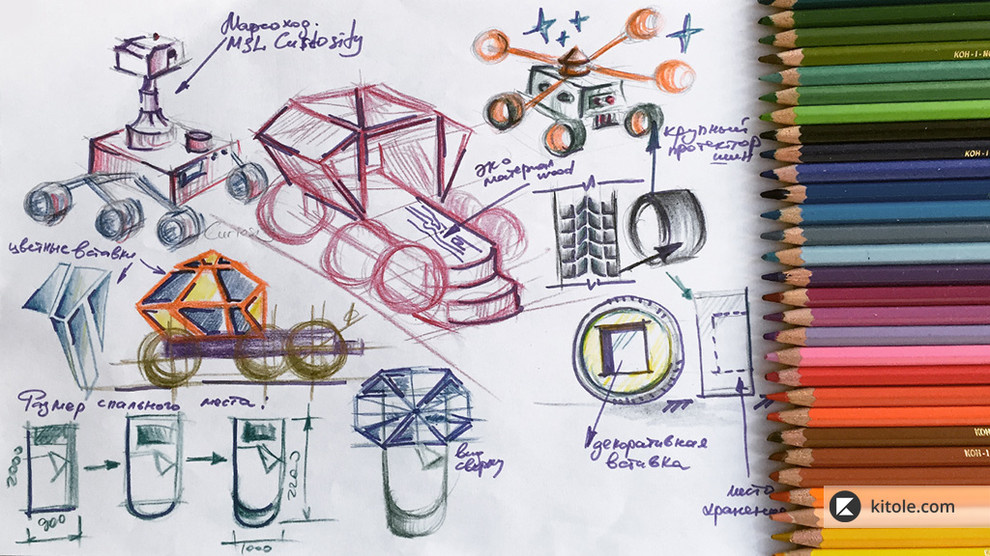 Марсоход.
MSL Curiosity
KOH-I-NO
крупный
протектор
шин
KOH-I
эко
материал
wood
Curiosity
цветные вставки
Размер спального места.
2000
900
2200
1000
вид
сверху
декоративная
вставка
KOH
KOH-I
место
хранения
kitole.com